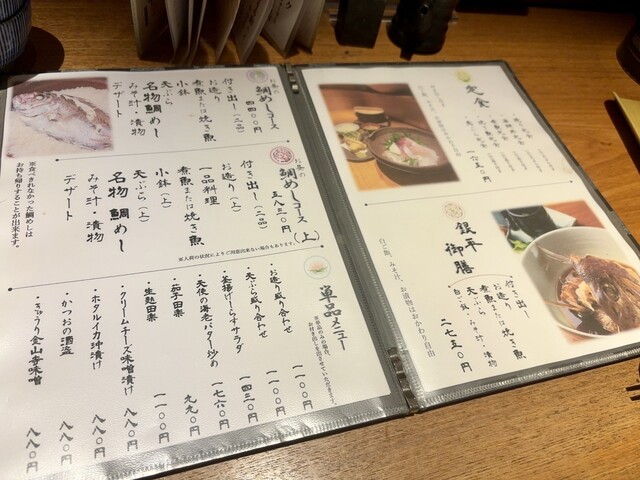 お昼の
鯛めしコース
四四〇〇円
付き出し(二品)
お造り
煮魚または焼き魚
小鉢
天ぷら
名物鯛めし
みそ汁・漬物
デザート
お昼の
鯛めしコース(上)
五八三〇円
付き出し(二品)
お造り(上)
一品料理
煮魚または焼き魚
小鉢(上)
天ぷら(上)
名物鯛めし
みそ汁・漬物
デザート
※食べきれなかった鯛めしは
お持ち帰りすることが出来ます。
※入荷の状況によりご用意出来ない場合もあります。
単品メニュー
・お造り盛り合わせ 一一〇〇円
・天ぷら盛り合わせ 一一〇〇円
・釜揚げしらすサラダ 一四三〇円
・天使の海老バター炒め 一七六〇円
・茄子田楽 九九〇円
・生麩田楽 一一〇〇円
・クリームチーズ味噌漬け 八八〇円
・ホタルイカ沖漬け 八八〇円
・かつおの酒盗 八八〇円
・きゅうり金山寺味噌 八八〇円
定食
一六五〇円
銀平御膳
付き出し
お造り
煮魚または焼き魚
天ぷら
白ご飯・みそ汁・漬物
二七五〇円
白ご飯、みそ汁、お漬物はおかわり自由